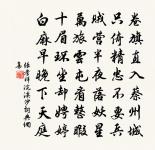 卷旗直入蔡州城
只倚精忠不要兵
賊營半夜落妖星
萬旅雲屯看整暇
十眉環坐卻娉婷
白麻早晚下天庭
張孝祥浣溪沙詞